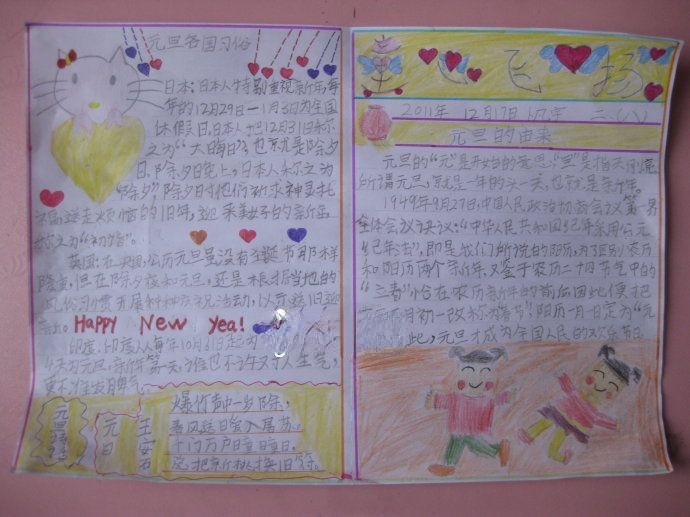 元旦各国习俗
日本:日本人特别重视新年,每
年的12月29日—1月3日为全国
休假日,日本人把12月31日称
之为“大晦日”,也就是除夕
日.除夕日晚上,日本人称之为
“除夜”,除夕时他们祈求神灵托
福送走烦恼的旧年,迎来美好的新年
称之为“初诣”。
英国:在英国,公历元旦虽没有圣诞节那样
隆重,但在除夕夜和元旦,还是根据当地的
风俗习惯开展种种庆祝活动,以示送旧迎
新。
Happy New Year!
印度:印度人每年10月31日起为
4天为元旦,新年第一天,谁也不许对人生气,
更不准发脾气
元旦诗
元日
王安石
爆竹声中一岁除,
春风送日暖入屠苏。
千门万户日童日童日,
总把新桃换旧符。
飞扬
2011年 12月17日 二、(八)
元旦的由来
元旦的“元”是开始的意思,“旦”是指天明,
所谓元旦,就是一年的头一天,也就是新年。
1949年9月27日,中国人民政治协商会议第一届
全体会议决议:“中华人民共和国纪年采用公元
纪年法”,即是我们所说的阳历,为了区别农历
和阳历两个新年,又鉴于农历二十四节气中的
“立春”恰在农历新年的前后,因此便把
农历正月初一改称为“春节”,阳历一月一日定为“元
此,元旦才成为全国人民的欢乐节日